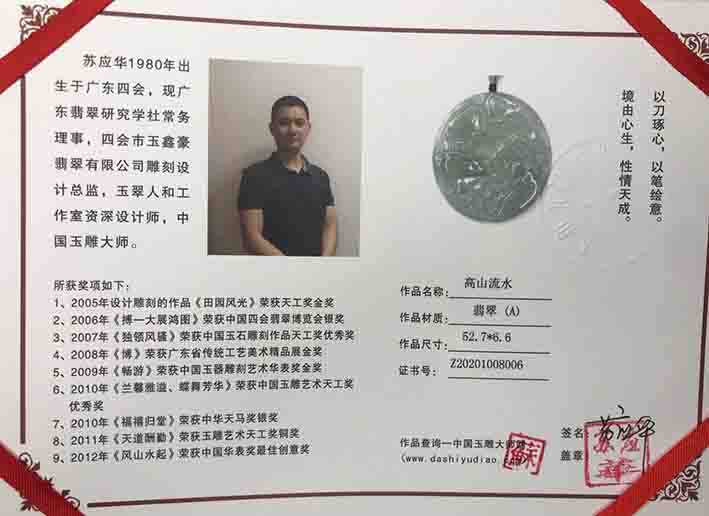 苏应华1980年出
生于广东四会，现广
东翡翠研究学社常务
理事，四会市玉鑫豪
翡翠有限公司雕刻设
计总监，玉翠人和工
作室资深设计师，中
国玉雕大师。
以刀琢心，以笔绘意。
境由心生，性情天成。
所获奖项如下：
1、2005年设计雕刻的作品《田园风光》荣获天工奖金奖
2、2006年《搏一大展鸿图》荣获中国四会翡翠博览会银奖
3、2007年《独领风骚》荣获中国玉石雕刻作品天工奖优秀奖
4、2008年《博》荣获广东省传统工艺美术精品展金奖
5、2009年《畅游》荣获中国玉器雕刻艺术华表奖金奖
6、2010年《兰馨雅溢、蝶舞芳华》荣获中国玉雕艺术天工奖
优秀奖
7、2010年《福禧归堂》荣获中华天马奖银奖
8、2011年《天道酬勤》荣获玉雕艺术天工奖铜奖
9、2012年《风山水起》荣获中国华表奖最佳创意奖
作品名称：高山流水
作品材质：翡翠（A）
作品尺寸：52.7*6.6
证书号：Z20201008006
作品查询一中国玉雕大师
（www.dashiyudiao.com）
蘇
签名：苏应华
盖章：